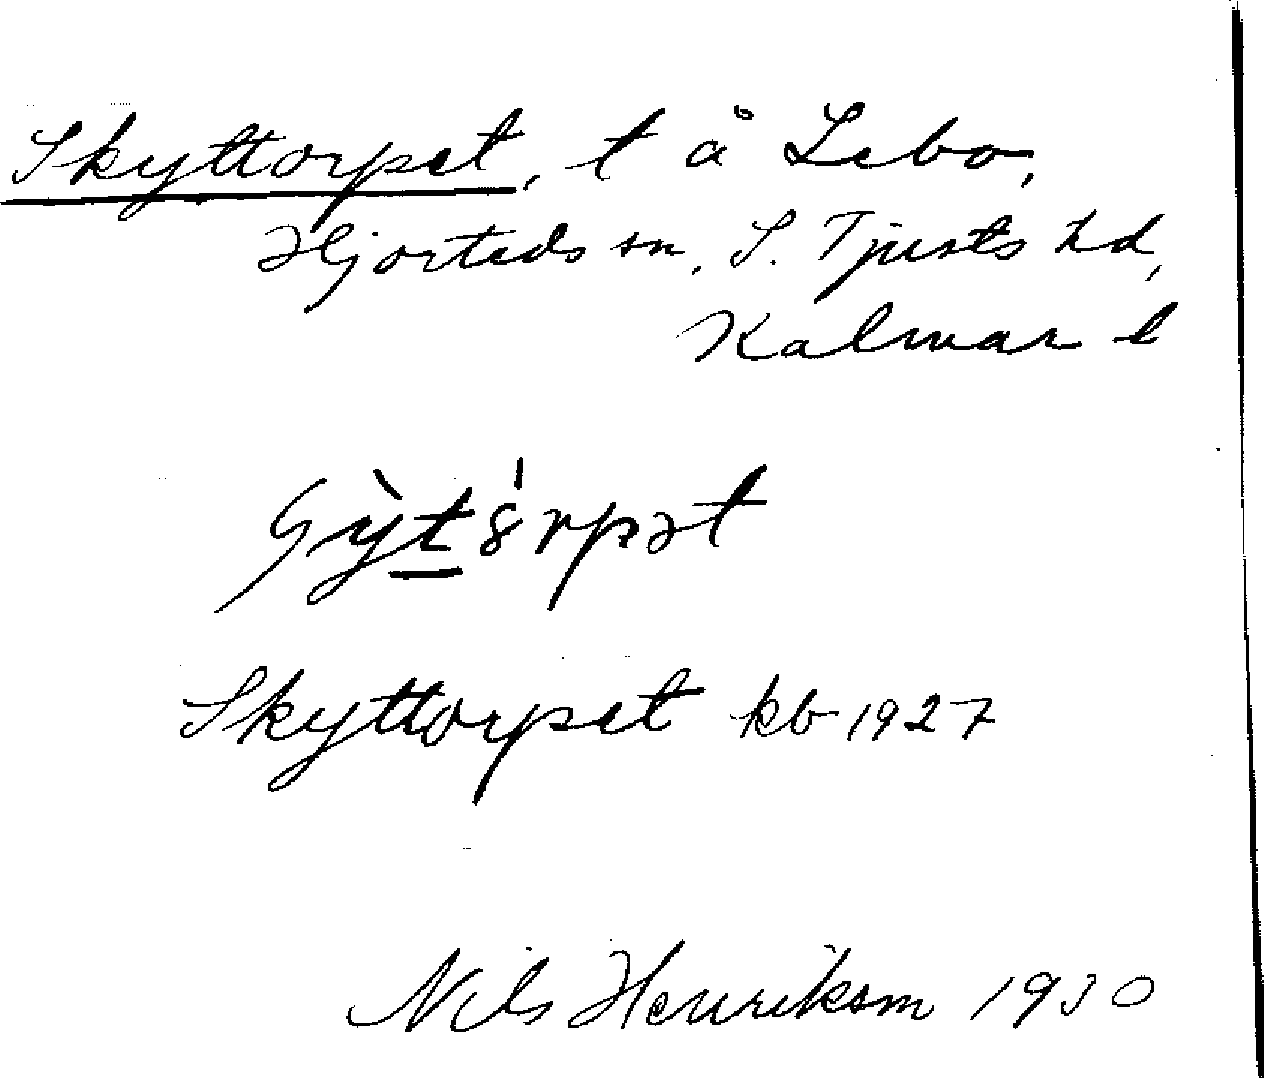 Skyttorpet, t å Lebo,
Hjorteds sn, S. Tjusts hd,
Kalmar l
Skyttorpet kb 1927
Nils Henrikson 1930